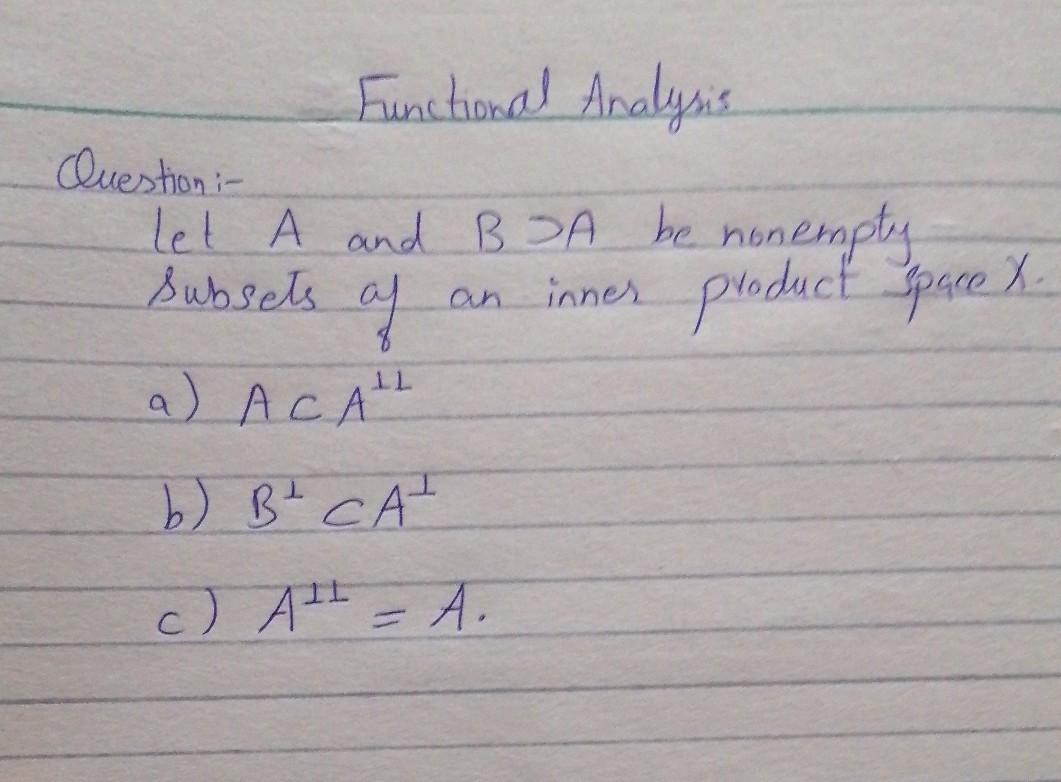 Functional Analysis
Question :-
let A and B ⊃ A be nonempty
subsets of an inner product space X.
a) A ⊂ A^⊥⊥
b) B^⊥ ⊂ A^⊥
c) A^⊥⊥ = A.